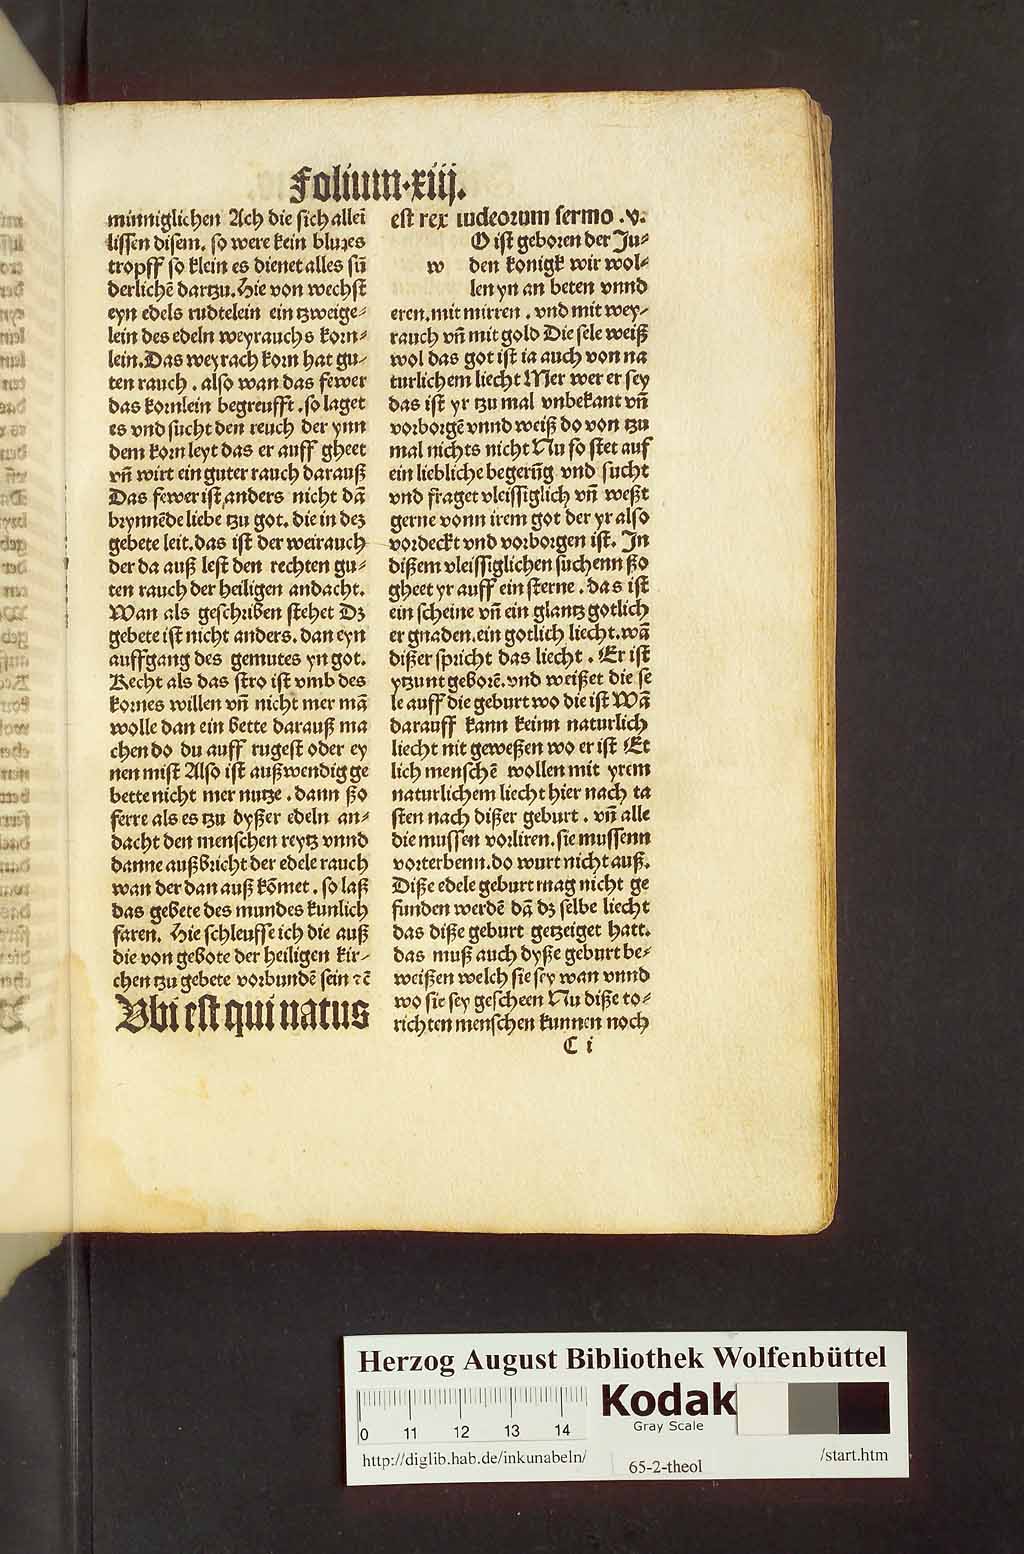 Folium·xiij.
minniglichen Ach die sich alleī
lissen disem. so were kein blutzes
tropff so klein es dienet alles sū
derlichē dartzu. Hie von wechst
eyn edels rudtelein ein tzweige⸗
lein des edeln weyrauchs korn⸗
lein. Das weyrach korn hat gu⸗
ten rauch . also wan das fewer
das kornlein begreufft . so laget
es vnd sucht den reuch der ynn
dem korn leyt das er auff gheet
vñ wirt ein guter rauch darauß
Das fewer ist anders nicht dā
brynnēde liebe tzu got. die in dez
gebete leit. das ist der weirauch
der da auß lest den rechten gu⸗
ten rauch der heiligen andacht.
Wan als geschriben stehet Dz
gebete ist nicht anders. dan eyn
auffgang des gemutes yn got.
Recht als das stro ist vmb des
kornes willen vñ nicht mer mā
wolle dan ein bette darauß ma
chen do du auff rugest oder ey
nen mist Also ist außwendig ge
bette nicht mer nutze . dann ßo
ferre als es tzu dyßer edeln an⸗
dacht den menschen reytz vnnd
danne außbricht der edele rauch
wan der dan auß kōmet . so laß
das gebete des mundes kunlich
faren. Hie schleusse ich die auß
die von gebote der heiligen kir⸗
chen tzu gebete vorbundē sein ⁊ē
Vbi est qui natus
est rex iudeorum sermo .v.
O ist geboren der Ju⸗
w den konigk wir wol⸗
len yn an beten vnnd
eren. mit mirren . vnd mit wey⸗
rauch vñ mit gold Die sele weiß
wol das got ist ia auch von na
turlichem liecht Mer wer er sey
das ist yr tzu mal vnbekant vñ
vorborgē vnnd weiß do von tzu
mal nichts nicht Nu so stet auf
ein liebliche begerūg vnd sucht
vnd fraget vleissiglich vñ weßt
gerne vonn irem got der yr also
vordeckt vnd vorborgen ist. In
dißem vleissiglichen suchenn ßo
gheet yr auff ein sterne . das ist
ein scheine vñ ein glantz gotlich
er gnaden. ein gotlich liecht. wā
dißer spricht das liecht . Er ist
ytzunt geborē. vnd weißet die se
le auff die geburt wo die ist Wā
darauff kann keinn naturlich
liecht nit geweßen wo er ist Et
lich menschē wollen mit yrem
naturlichem liecht hier nach ta
sten nach dißer geburt . vñ alle
die mussen vorliren. sie mussenn
vorterbenn. do wurt nicht auß.
Diße edele geburt mag nicht ge
funden werdē dā dz selbe liecht
das diße geburt getzeiget hatt.
das muß auch dyße geburt be⸗
weißen welch sie sey wan vnnd
wo sie sey gescheen Nu diße to⸗
richten menschen kunnen noch
C i
Herzog August Bibliothek Wolfenbüttel
0 11 12 13 14
Kodak
Gray Scale
http://diglib.hab.de/inkunabeln/
65-2-theol
/start.htm